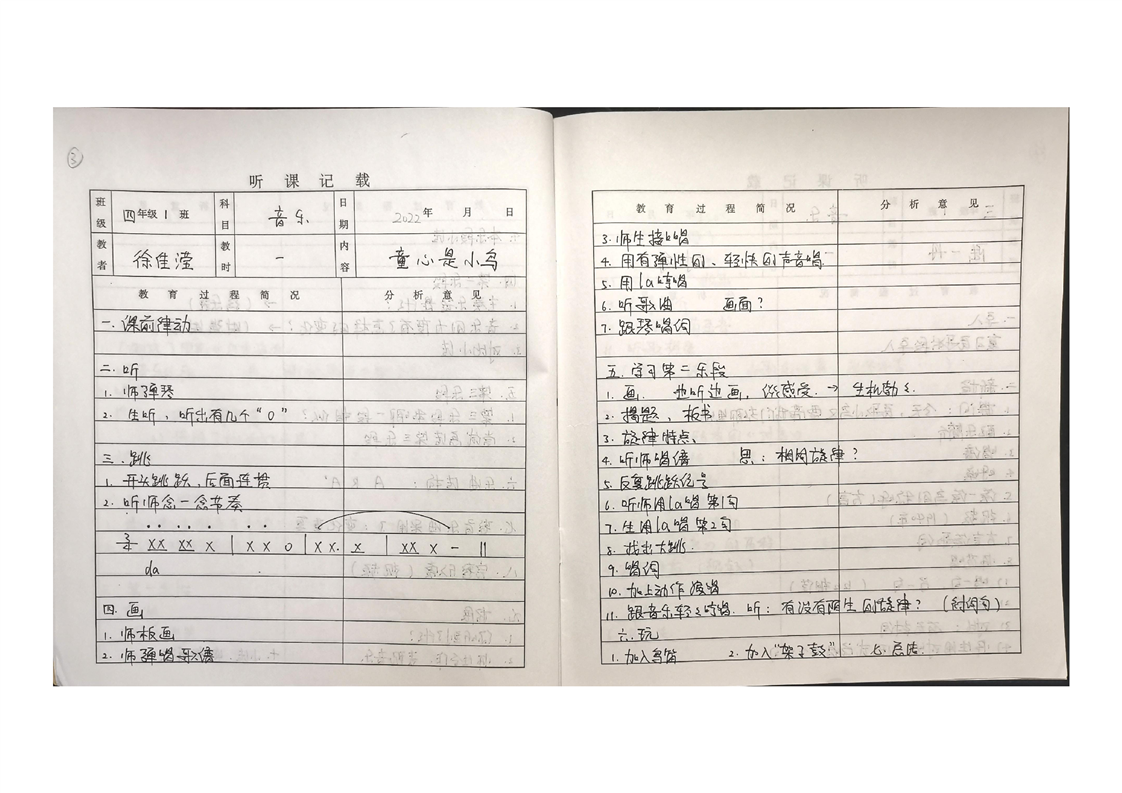 ③
听课记载
班级 四年级1班 科目 音乐 日期 2022年 月 日
教者 徐佳滢 教时 一 内容 童心是小鸟
教育过程简况 分析意见
一.课前律动
二.听
1.师弹琴
2.生听,听出有几个“0”
三.跳
1.开头跳跃,后面连贯
2.听师念一念节奏
XX XX X | X X 0 | XX. X | XX X - ||
da
四.画
1.师板画
2.师弹唱歌谱
教育过程简况 分析意见
3.师生接口唱
4.用有弹性的、轻快的声音唱
5.用la哼唱
6.听歌曲 画面?
7.跟琴唱词
五.学习第二乐段
1.画. 边听边画,谈感受.→生机勃勃.
2.揭题、板书
3.旋律特点、
4.听师唱谱 思:相同旋律?
5.反复跳跃记号
6.听师用la唱第1句
7.生用la唱第2句
8.找出大跳.
9.唱词
10.加上动作演唱
11.跟音乐轻轻哼唱.听:有没有陌生的旋律?
六.玩
1.加入鸟笛 2.加入“架子鼓” 七.总结.